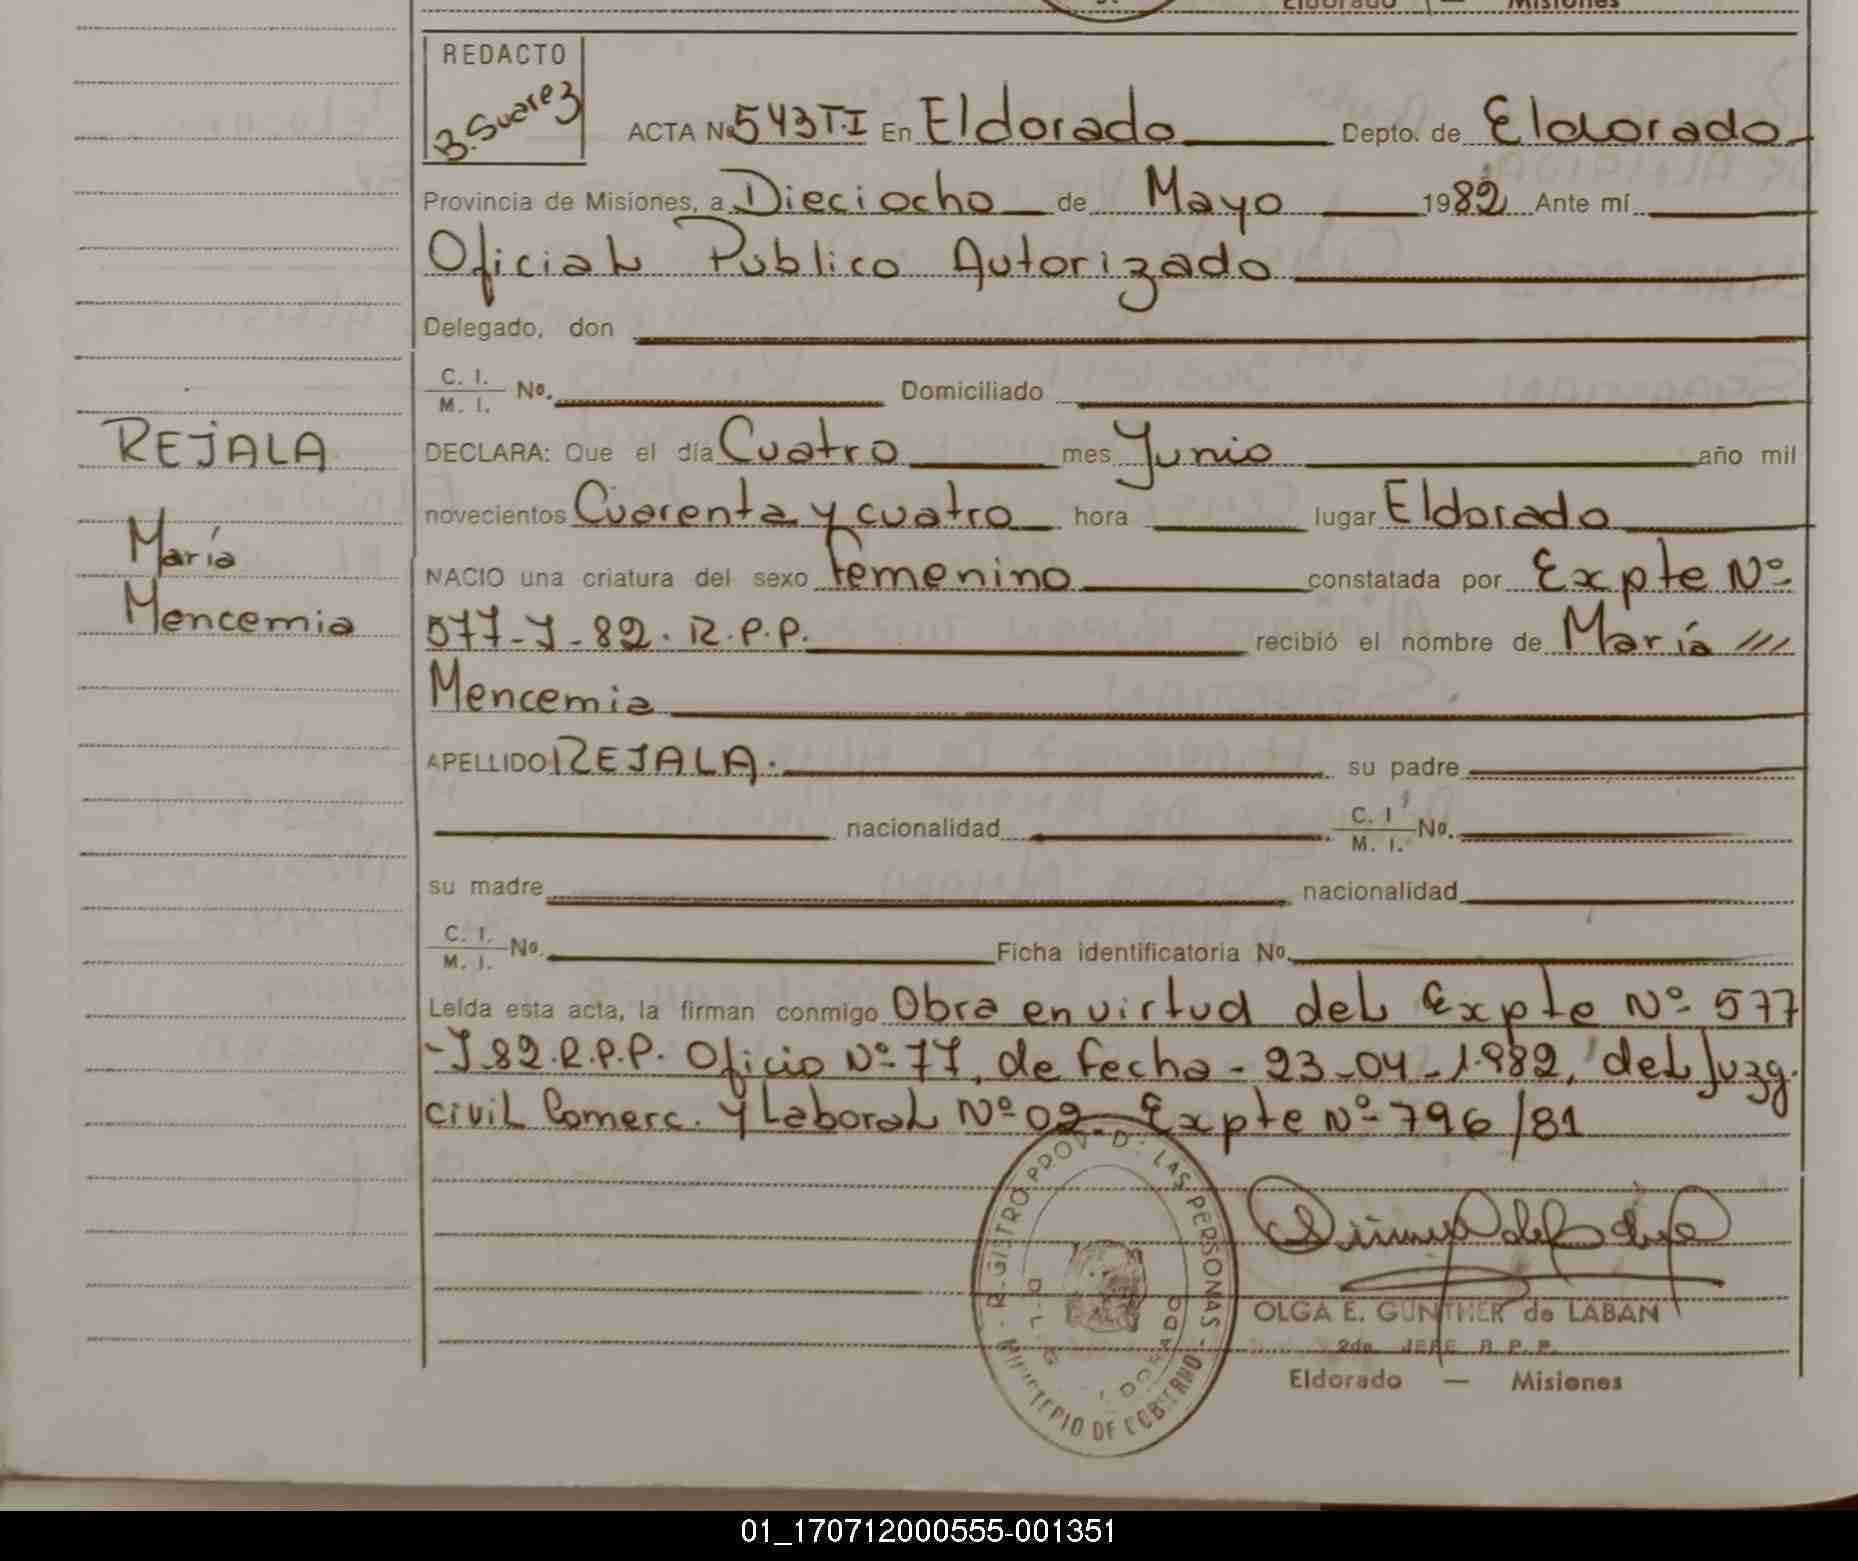 Eldorado — Misiones
REDACTO
B. Suarez
ACTA No 543 T.I En Eldorado Depto. de Eldorado
Provincia de Misiones, a Dieciocho de Mayo 1982 Ante mí
Oficial Publico Autorizado
Delegado, don
C. I.
M. I. No. Domiciliado
REJALA
María
Mencemia
DECLARA: Que el día Cuatro mes Junio año mil
novecientos Cuarenta y cuatro hora lugar Eldorado
NACIO una criatura del sexo Femenino constatada por Expte Nº
577-J-82. R.P.P. recibió el nombre de María ///
Mencemia
APELLIDO REJALA. su padre
nacionalidad C. I. M. I. No.
su madre nacionalidad
C. I. M. I. No. Ficha identificatoria No.
Leída esta acta, la firman conmigo Obra en virtud del Expte Nº 577
-J.82.R.P.P. Oficio Nº 77, de fecha - 23-04-1.982, del Juzg.
civil Comerc. y Laboral Nº 02- Expte Nº 796/81
REGISTRO PROV. D. LAS PERSONAS - MINISTERIO DE GOBIERNO -
OLGA E. GUNTHER de LABAN
2do. JEFE R. P. P.
Eldorado — Misiones
01_170712000555-001351